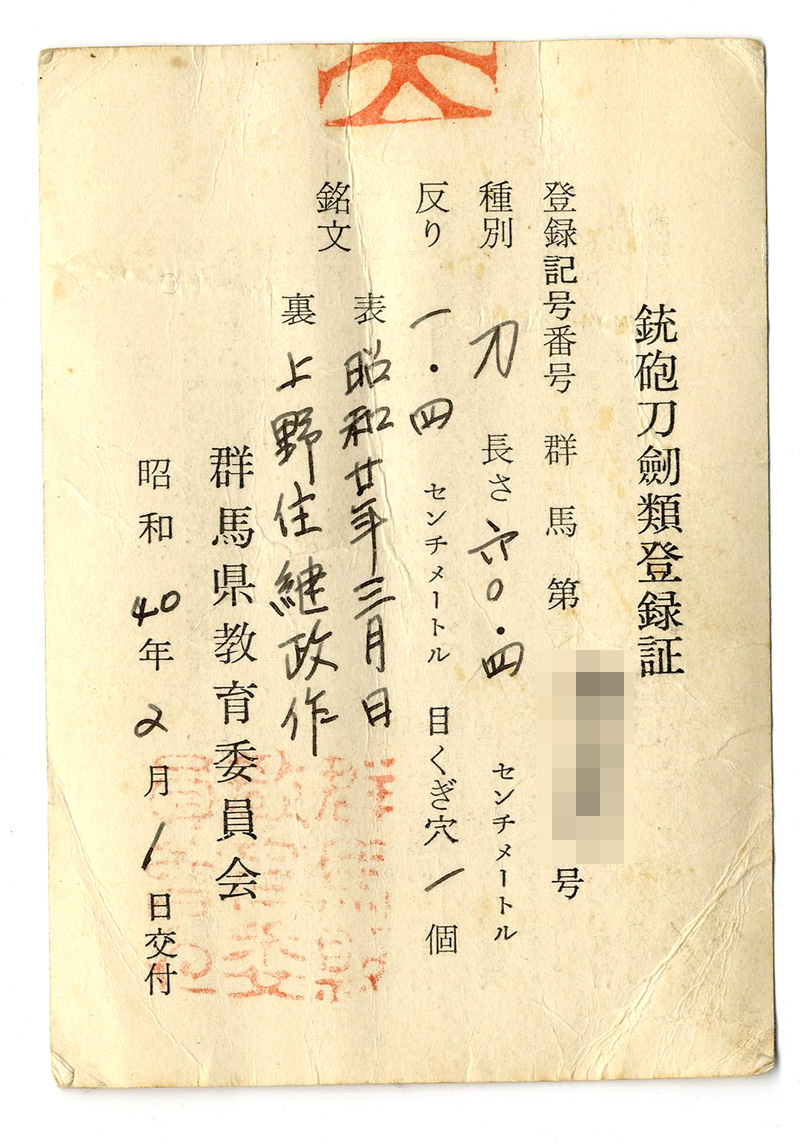 銃砲刀劍類登録証
登録記号番号 群馬第 号
種別 刀 長さ 六〇・四 センチメートル
反り 一・四 センチメートル 目くぎ穴 1 個
銘文
表 昭和廿年三月日
裏 上野住継政作
群馬県教育委員会
昭和 40 年 2 月 1 日交付